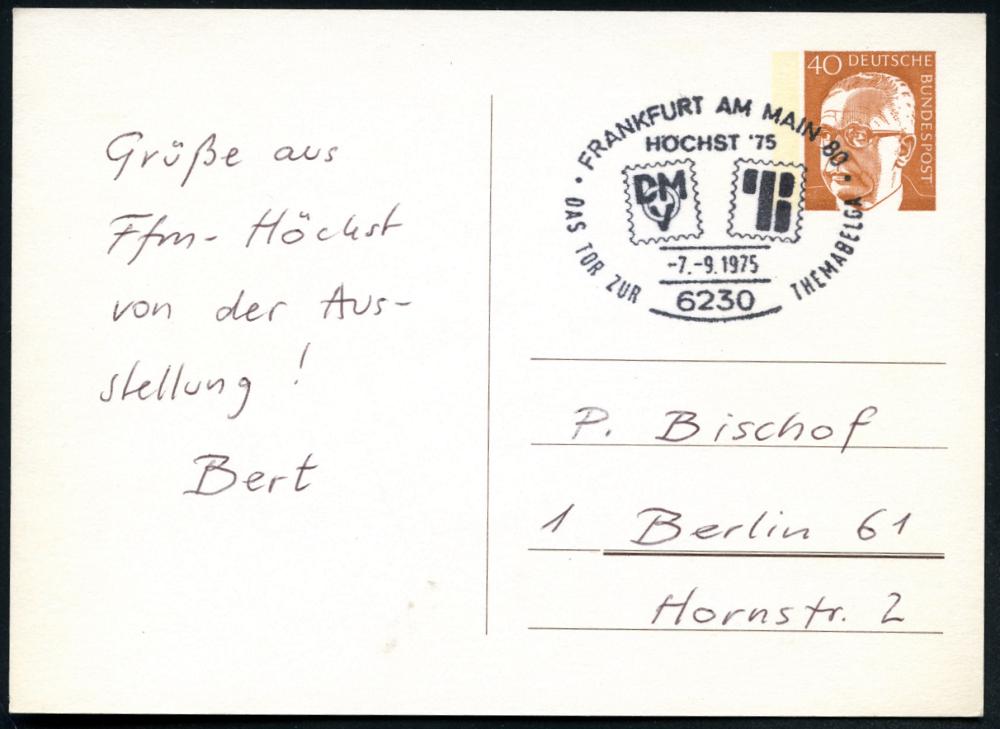 Grüße aus
Ffm- Höchst
von der Aus-
stellung !
Bert
40 DEUTSCHE
BUNDESPOST
• FRANKFURT AM MAIN 80 •
HÖCHST '75
DMV
TB
-7.-9.1975
6230
DAS TOR ZUR THEMABELGA
P. Bischof
1 Berlin 61
Hornstr. 2